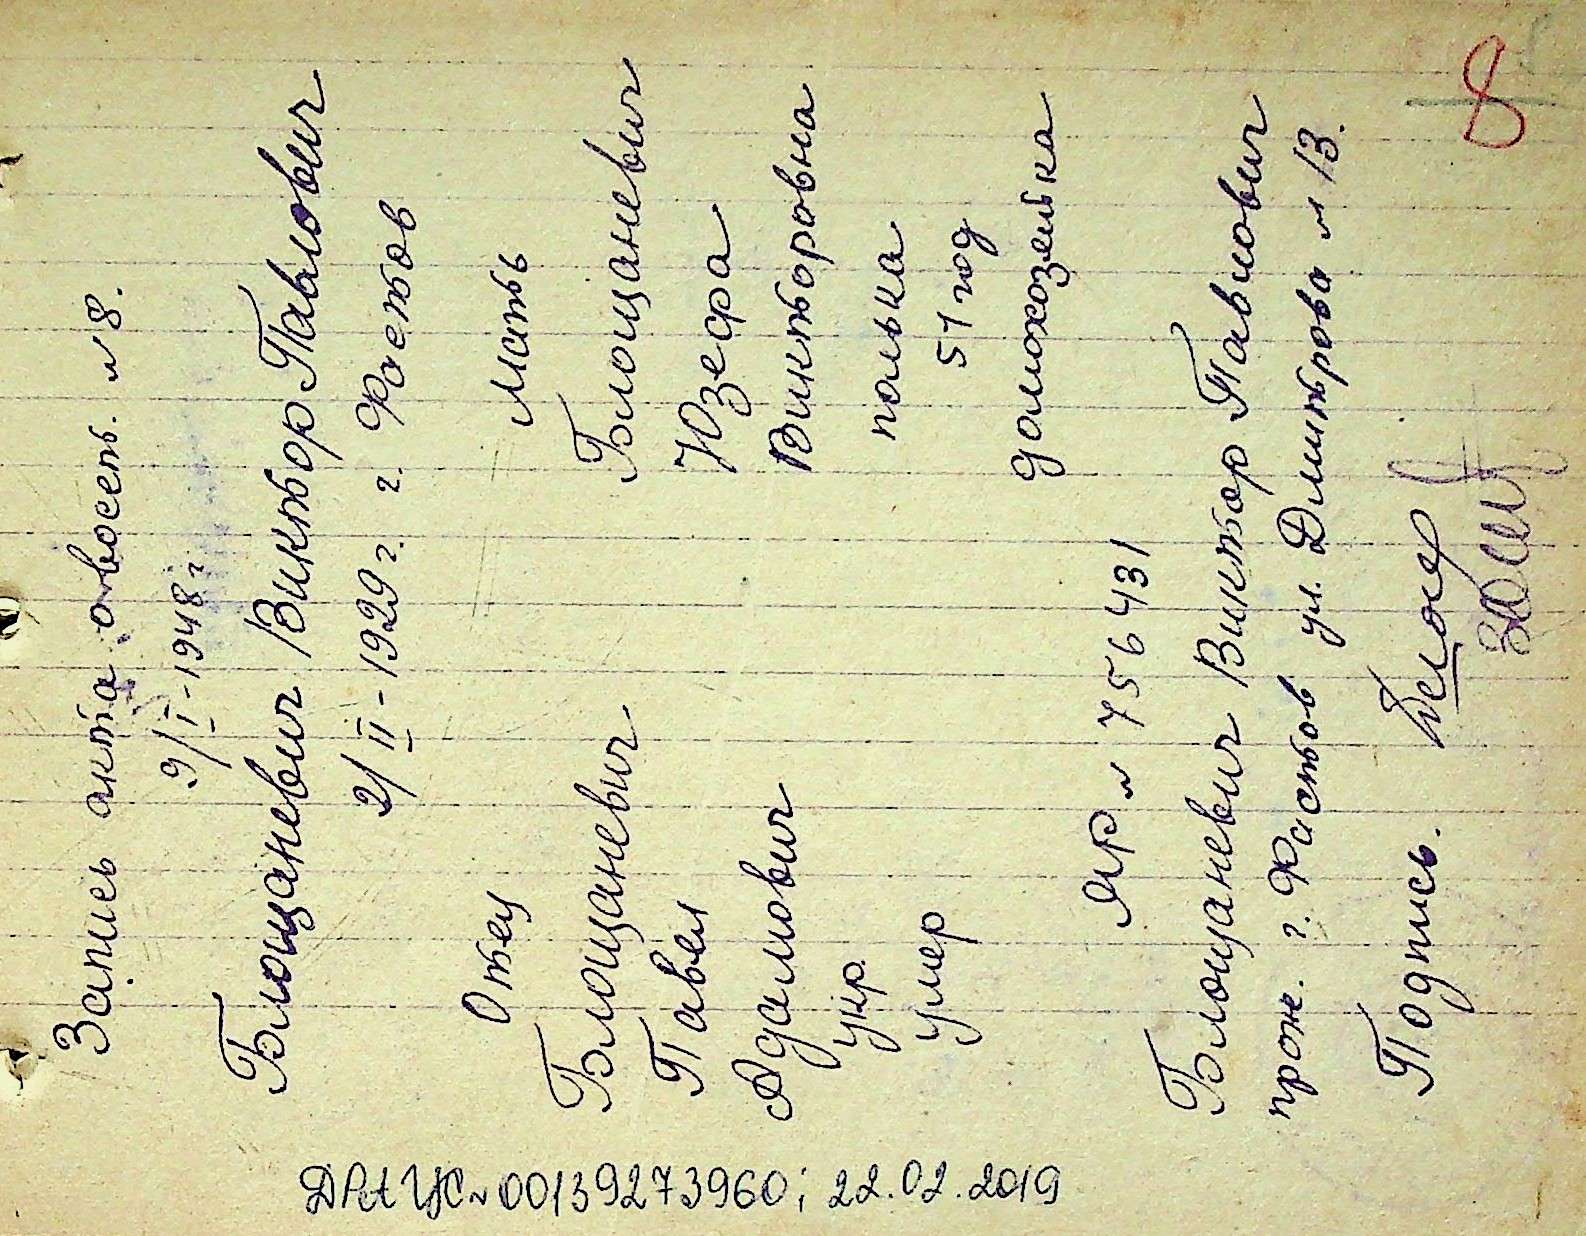 8
Запись акта о восст. №8.
9/I-1948 г
Блощаневич Виктор Павлович
2/II-1929 г. г. Фастов
Отец
Блощаневич
Павел
Адамович
укр.
умер
мать
Блощаневич
Юзефа
Викторовна
полька
51 год
домохозяйка
ЯР № 756431
Блощаневич Виктор Павлович
прож. г. Фастов ул. Димтрова № 13.
Подпись.
ДРАЦС № 00139273960; 22.02.2019